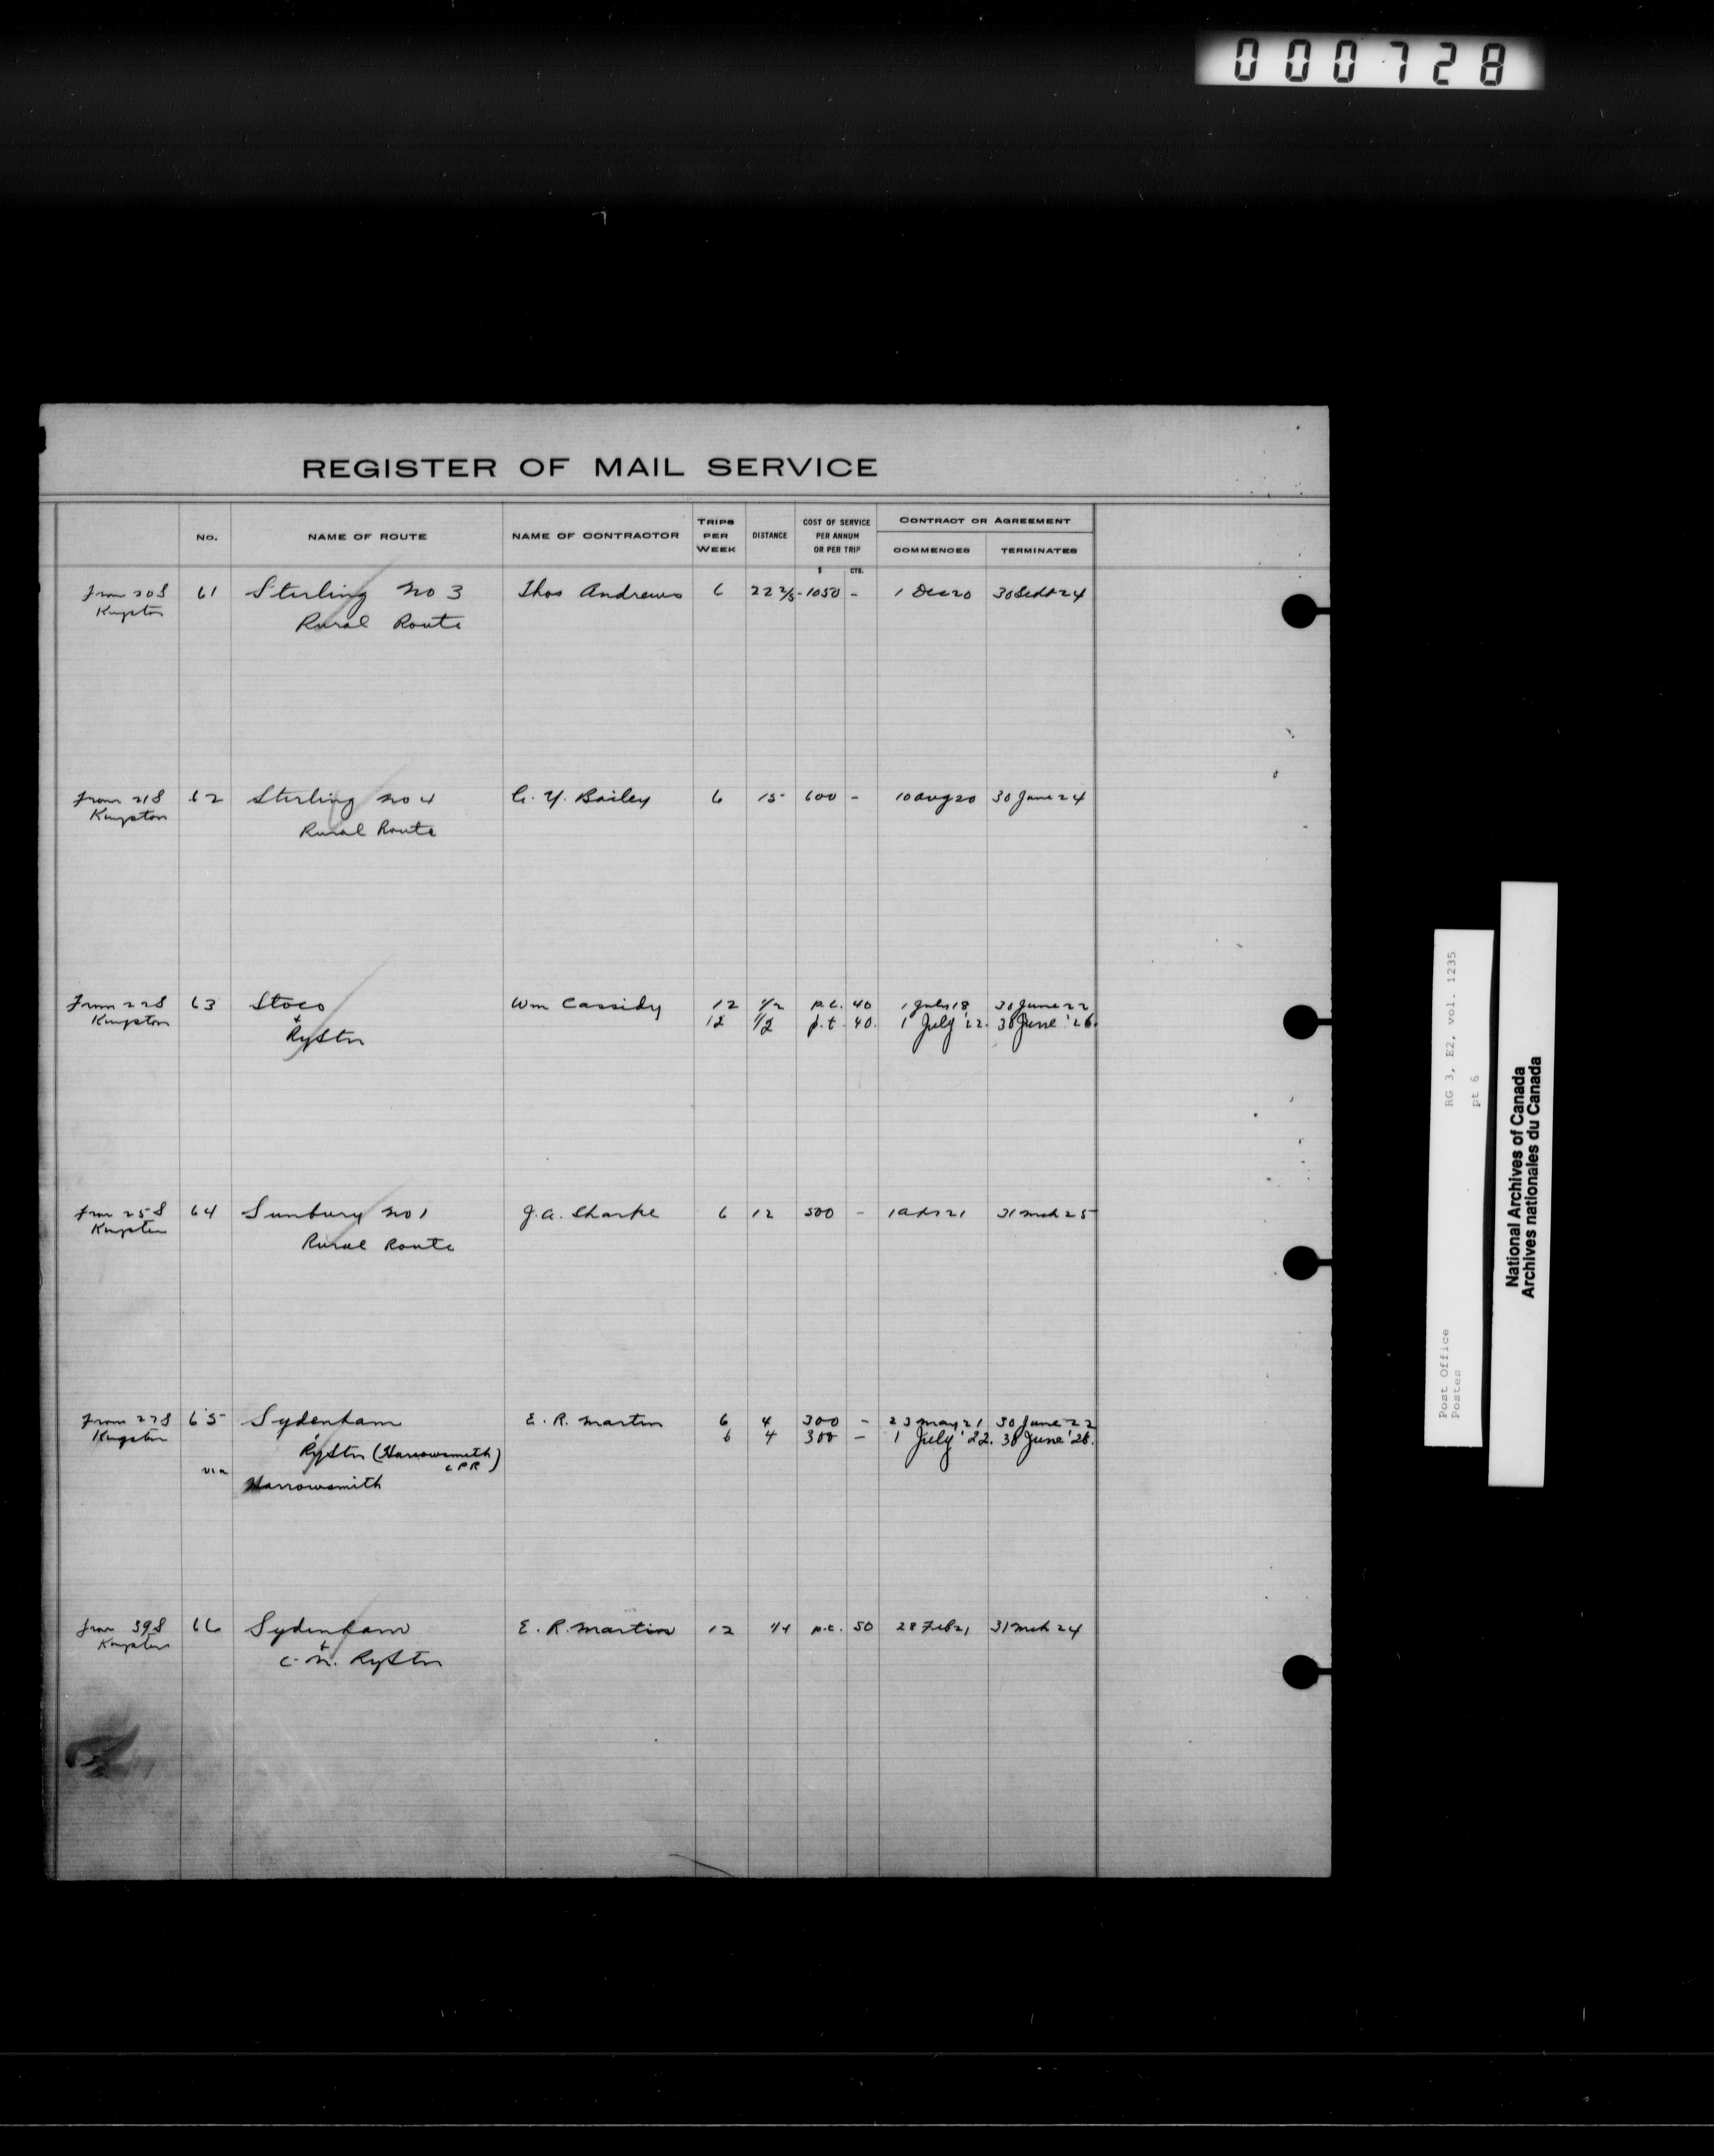 000728
REGISTER OF MAIL SERVICE
No. NAME OF ROUTE NAME OF CONTRACTOR TRIPS PER WEEK DISTANCE COST OF SERVICE PER ANNUM OR PER TRIP CONTRACT OR AGREEMENT
COMMENCES TERMINATES
$ CTS.
from 208 61 Sterling No 3 Thos Andrews 6 22 2/5 1050 - 1 Dec 20 30 Sept 24
Kingston Rural Route
from 218 62 Sterling No 4 6 15 600 - 10 Aug 20 30 June 24
Kingston Rural Route
From 228 63 Stoco Wm Cassidy 12 1/2 p.t. 40 1 July 18 30 June 22
Kingston & 12 1/2 p.t. 40. 1 July '22. 30 June '26.
Ry Stn
from 258 64 Sunbury No 1 J.A. Sharpe 6 12 500 - 1 Apr 21 31 Mch 25
Kingston Rural Route
from 278 65 Sydenham E. R. Martin 6 4 300 - 23 May 21 30 June 22
Kingston & 6 4 300 - 1 July '22. 30 June '26.
Ry Stn (Harrowsmith
via CPR)
Harrowsmith
from 398 66 Sydenham E. R. Martin 12 1/4 p.t. 50 28 Feb 21 31 Mch 24
Kingston &
C. N. Ry Stn
Post Office RG 3, E2, vol. 1235
Postes pt 6
National Archives of Canada
Archives nationales du Canada